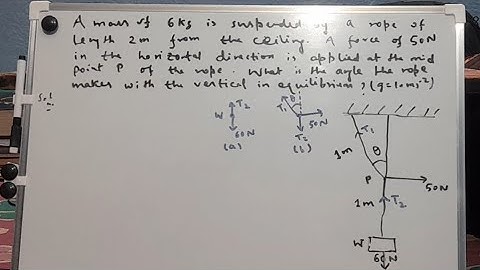 A mass of 6Kg is suspended by a rope of
length 2m from the ceiling. A force of 50N
in the horizontal direction is applied at the mid
point P of the rope. What is the angle the rope
makes with the vertical in equilibrium? (g=10ms⁻²)
Sol
T₂
W
60N
(a)
θ
T₁
50N
T₂
(b)
T₁
1m
θ
P
50N
1m
T₂
W
60N